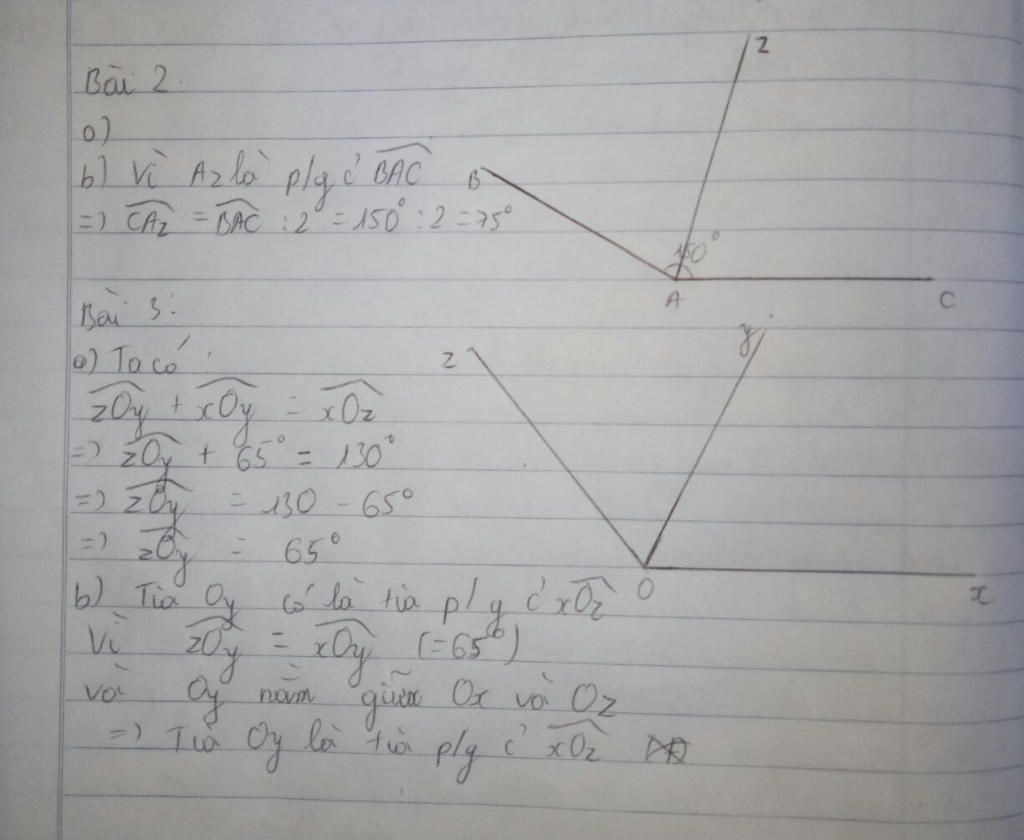 Bài 2.
a)
b) Vì Az là p/g c̉ BAC
=) CAz = BAC : 2 = 150° : 2 = 75°
z
B
150°
A
C
Bài 3:
a) Ta có:
zOy + xOy = xOz
=) zOy + 65° = 130°
=) zOy = 130 - 65°
=) zOy = 65°
b) Tia Oy có là tia p/g c̉ xOz
Vì zOy = xOy (=65°)
và Oy nằm giữa Ox và Oz
=) Tia Oy là tia p/g c̉ xOz
z
y
O
x